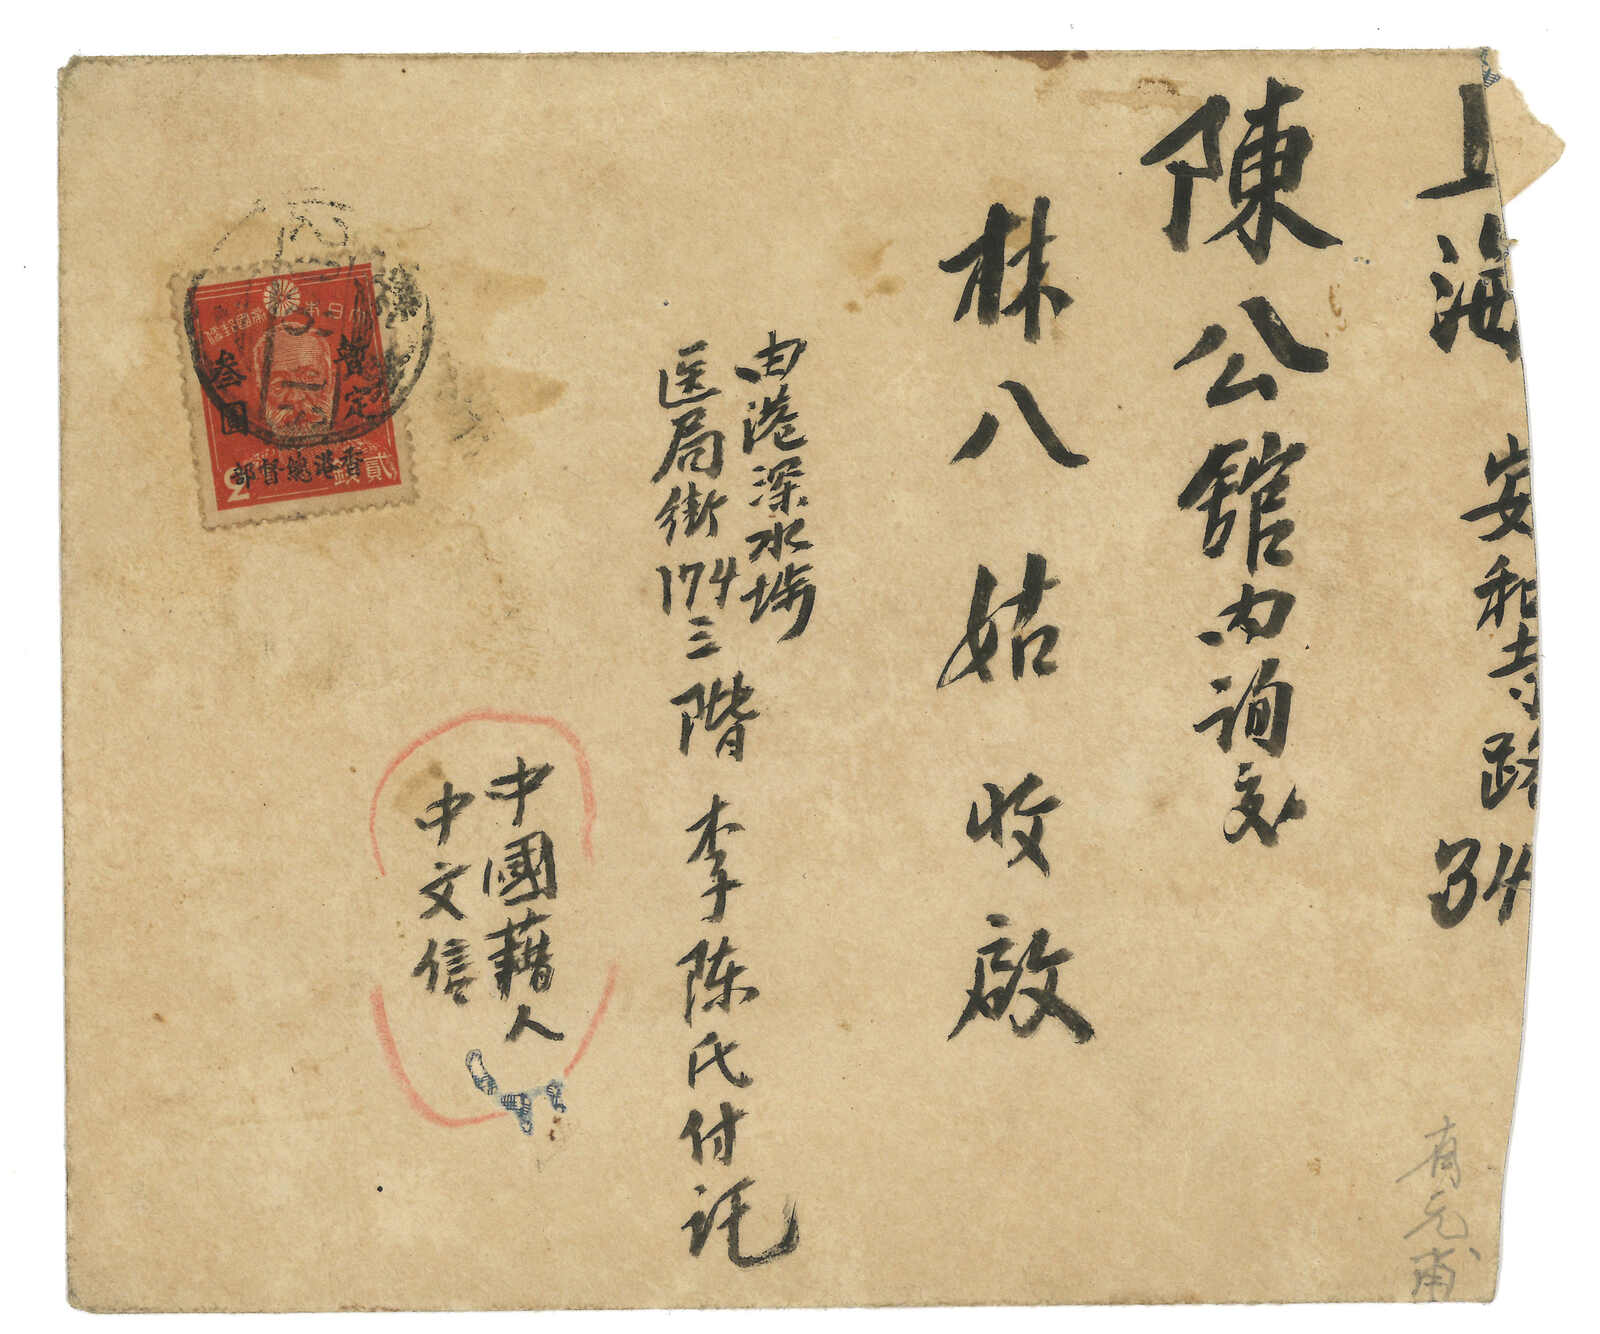 上海 安和寺路 34
陳公館內詢交
林八姑收啟
由港深水埗
医局街174三階 李陈氏付託
中國藉人
中文信
有元甫
大日本帝國郵便
暫定
叁圓
貳錢
香港總督部
2